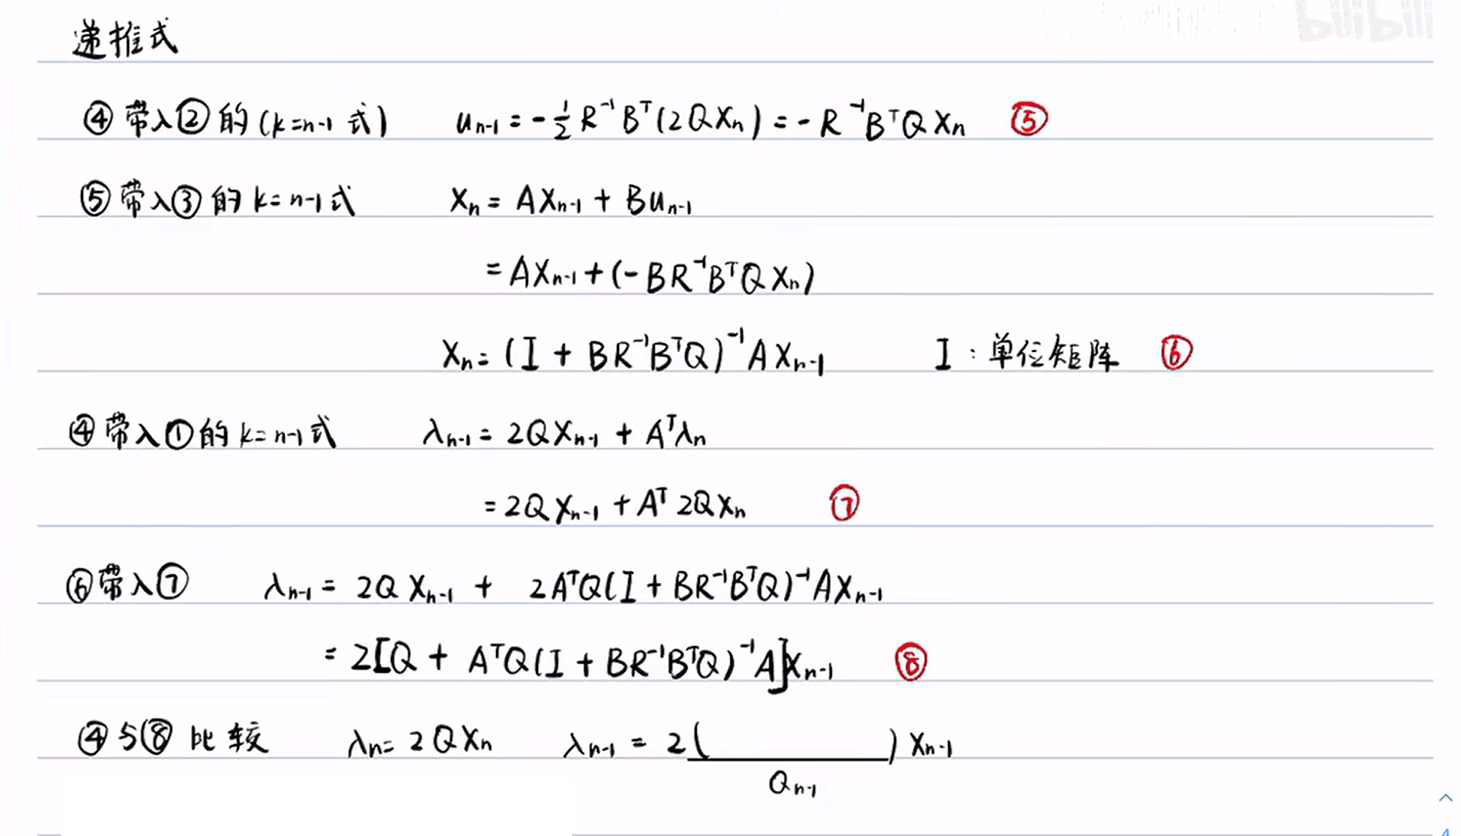 递推式
bilibili
④带入②的(k=n-1 式) uₙ₋₁ = -½ R⁻¹Bᵀ(2QXₙ) = -R⁻¹BᵀQXₙ ⑤
⑤带入③的k=n-1式 Xₙ = AXₙ₋₁ + Buₙ₋₁
= AXₙ₋₁ + (-BR⁻¹BᵀQXₙ)
Xₙ = (I + BR⁻¹BᵀQ)⁻¹AXₙ₋₁ I:单位矩阵 ⑥
④带入①的k=n-1式 λₙ₋₁ = 2QXₙ₋₁ + Aᵀλₙ
= 2QXₙ₋₁ + Aᵀ2QXₙ ⑦
⑥带入⑦ λₙ₋₁ = 2QXₙ₋₁ + 2AᵀQ(I + BR⁻¹BᵀQ)⁻¹AXₙ₋₁
= 2[Q + AᵀQ(I + BR⁻¹BᵀQ)⁻¹A]Xₙ₋₁ ⑧
④与⑧比较 λₙ = 2QXₙ λₙ₋₁ = 2( )Xₙ₋₁
Qₙ₋₁